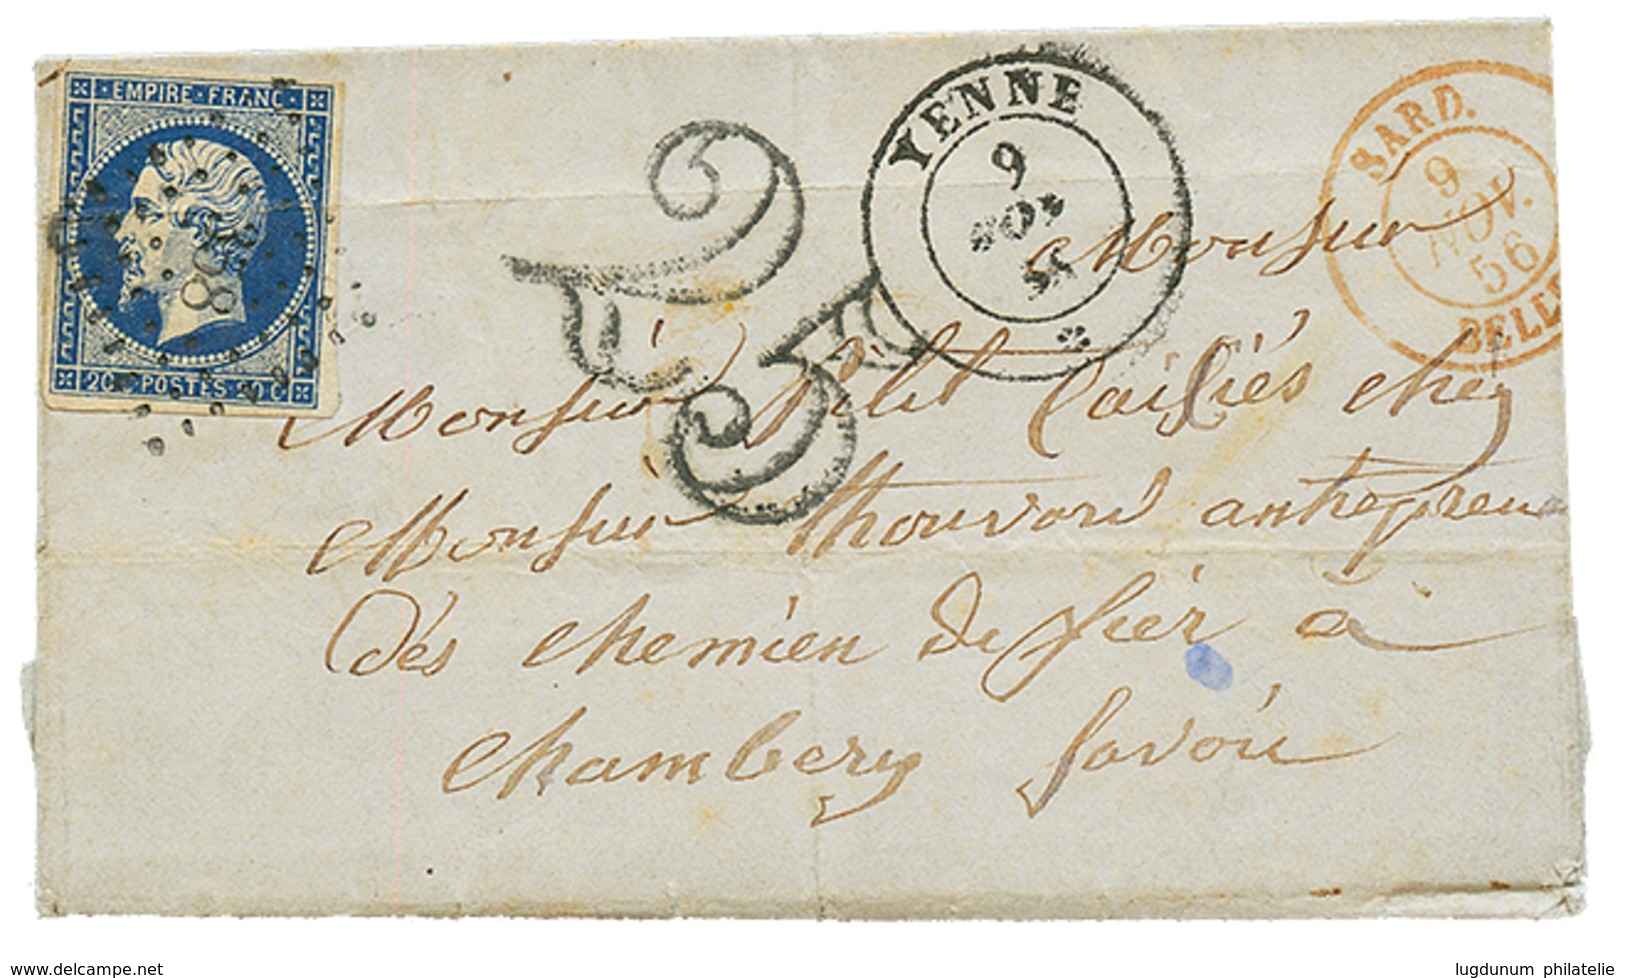 EMPIRE FRANC
20 C POSTES 20 C
YENNE
9
NOV
56
SARD.
9
NOV.
56
BELLE
Monsieur
Monsieur Pilit Cailiés chez
Monsieur Thouvard antrepreneu
dés chemien de fiér à
Chambery Savoie
www.delcampe.net
lugdunum philatelie